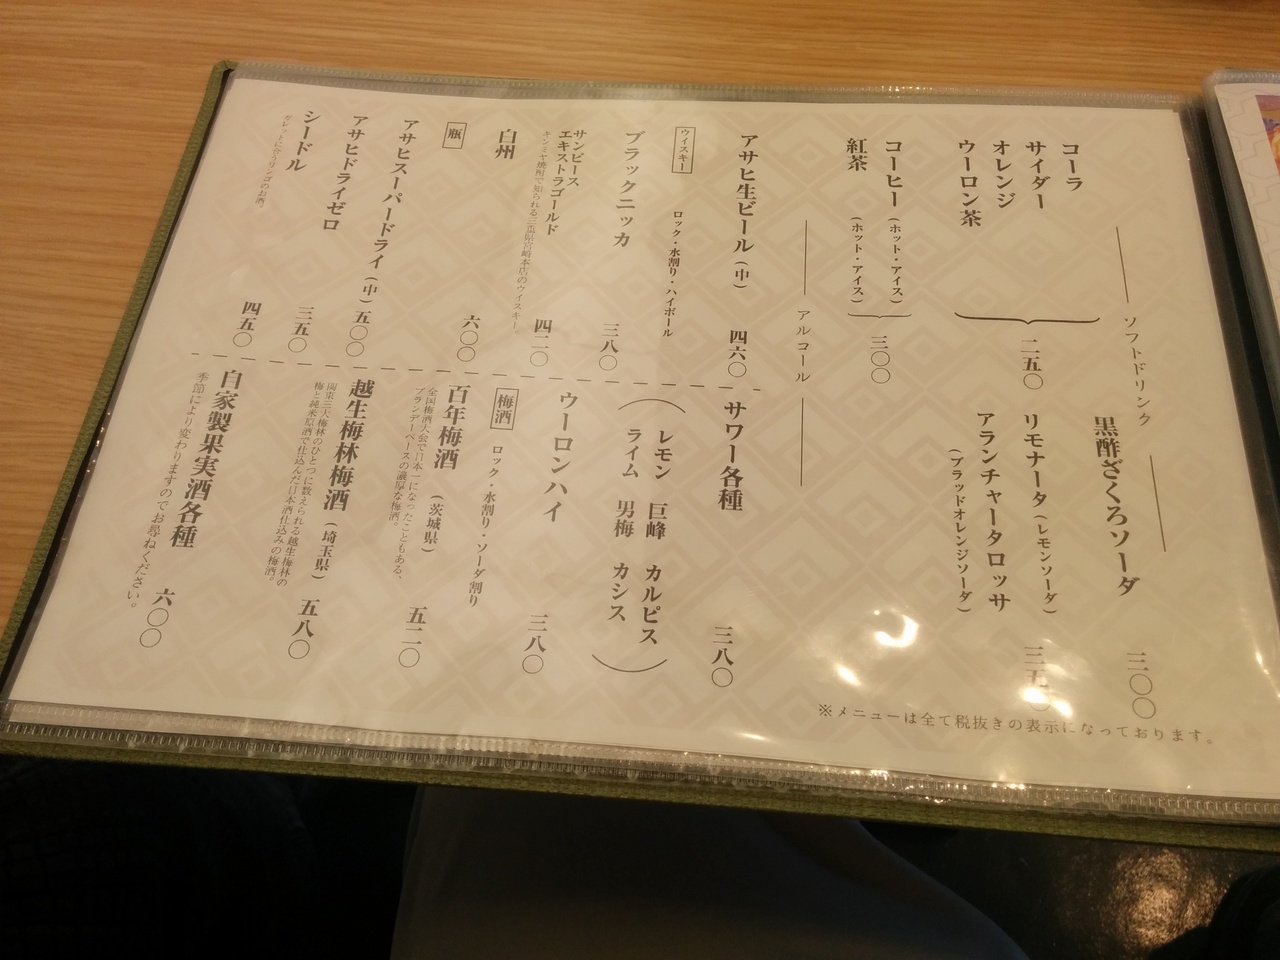 ソフトドリンク
コーラ
サイダー
オレンジ
ウーロン茶
二五〇
コーヒー（ホット・アイス）
紅茶（ホット・アイス）
三〇〇
黒酢ざくろソーダ 三〇〇
リモナータ（レモンソーダ）
アランチャータロッサ
（ブラッドオレンジソーダ）
三五〇
※メニューは全て税抜きの表示になっております。
アルコール
アサヒ生ビール（中） 四六〇
ウイスキー ロック・水割り・ハイボール
ブラックニッカ 三八〇
サンピース
エキストラゴールド 四二〇
キンミヤ焼酎で知られる三重県宮崎本店のウイスキー。
白州 六〇〇
瓶
アサヒスーパードライ（中）五〇〇
アサヒドライゼロ 三五〇
シードル 四五〇
ガレットに合うリンゴのお酒。
サワー各種 三八〇
（レモン 巨峰 カルピス
ライム 男梅 カシス）
ウーロンハイ 三八〇
梅酒 ロック・水割り・ソーダ割り
百年梅酒（茨城県） 五二〇
全国梅酒大会で日本一になったこともある、
ブランデーベースの濃厚な梅酒。
越生梅林梅酒（埼玉県） 五八〇
関東三大梅林のひとつに数えられる越生梅林の
梅と純米原酒で仕込んだ日本酒仕込みの梅酒。
自家製果実酒各種 六〇〇
季節により変わりますのでお尋ねください。